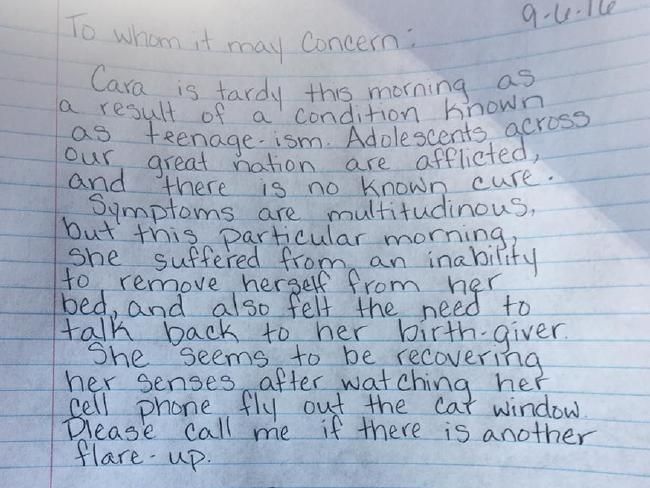 9-6-16
To whom it may concern:
Cara is tardy this morning as
a result of a condition known
as teenage-ism. Adolescents across
our great nation are afflicted,
and there is no known cure.
Symptoms are multitudinous,
but this particular morning,
she suffered from an inability
to remove herself from her
bed, and also felt the need to
talk back to her birth-giver.
She seems to be recovering
her senses after watching her
cell phone fly out the car window.
Please call me if there is another
flare-up.